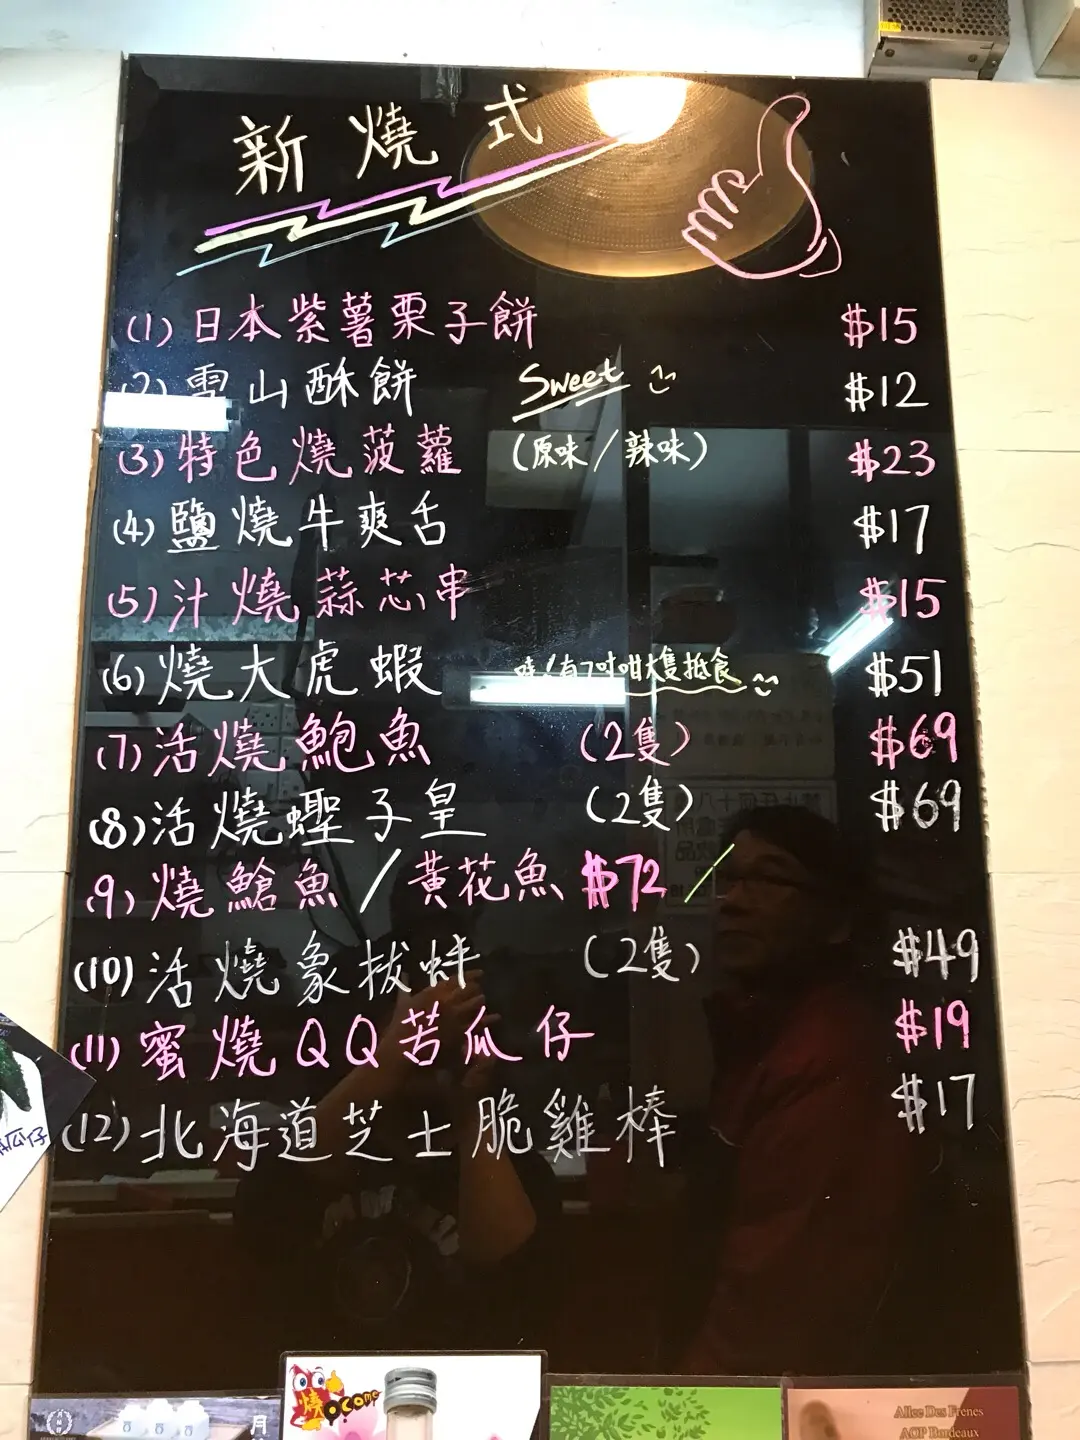 新燒式
(1) 日本紫薯栗子餅 $15
(2) 雪山酥餅 Sweet $12
(3) 特色燒菠蘿 (原味/辣味) $23
(4) 鹽燒牛爽舌 $17
(5) 汁燒蒜芯串 $15
(6) 燒大虎蝦 有7吋咁大隻抵食 $51
(7) 活燒鮑魚 (2隻) $69
(8) 活燒蟶子皇 (2隻) $69
(9) 燒鱠魚/黃花魚 $72/
(10) 活燒象拔蚌 (2隻) $49
(11) 蜜燒QQ苦瓜仔 $19
(12) 北海道芝士脆雞棒 $17
瓜仔
燒
月
Allee Des Frenes
AOP Bordeaux